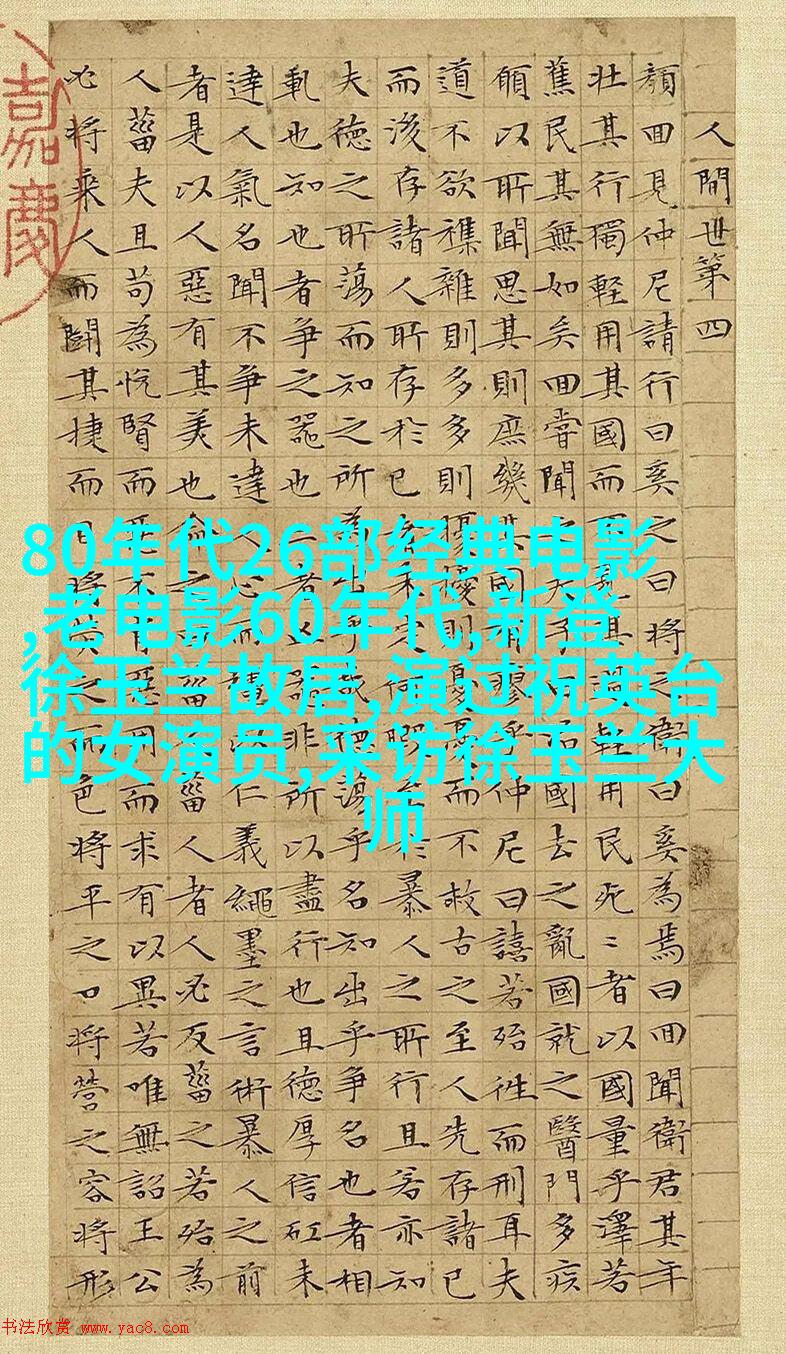 人間世第四
顏回見仲尼請行曰奚之曰將之衛曰奚為焉曰回聞衛君其年
壯其行獨輕用其國而其輕用民死〻者以國量乎澤若
蕉民其無如矣回嘗聞之夫子曰國去之亂國就之醫門多疾
願以所聞思其則庶幾其國有瘳乎仲尼曰譆若殆往而刑耳夫
道不欲襍雜則多多則擾擾則憂憂而不救古之至人先存諸已
而後存諸人所存於已者未定何暇至於暴人之所行且若亦知
夫德之所蕩而知之所為出乎哉德蕩乎名知出乎爭名也者相
軋也知也者爭之器也二者凶非所以盡行也且德厚信矼未
達人氣名聞不爭未達人心而仁義繩墨之言術暴人之前
者是以人惡有其美也命之菑菑人者人必反菑之若殆為
人菑夫且苟為悅賢而惡不惡用而求有以異若唯無詔王公
必將乘人而鬬其捷而目將之而色將平之口將營之容將形
嘉慶
80年代26部经典电影
,老电影60年代,新登
徐玉兰故居,演过祝英台
的女演员,采访徐玉兰大
师
书法欣赏 www.yac8.com